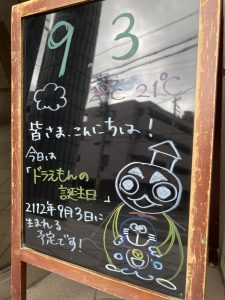 9.3
21℃
皆さま、こんにちは!
今日は
「ドラえもんの
誕生日」
2112年9月3日に
生まれる
予定です!